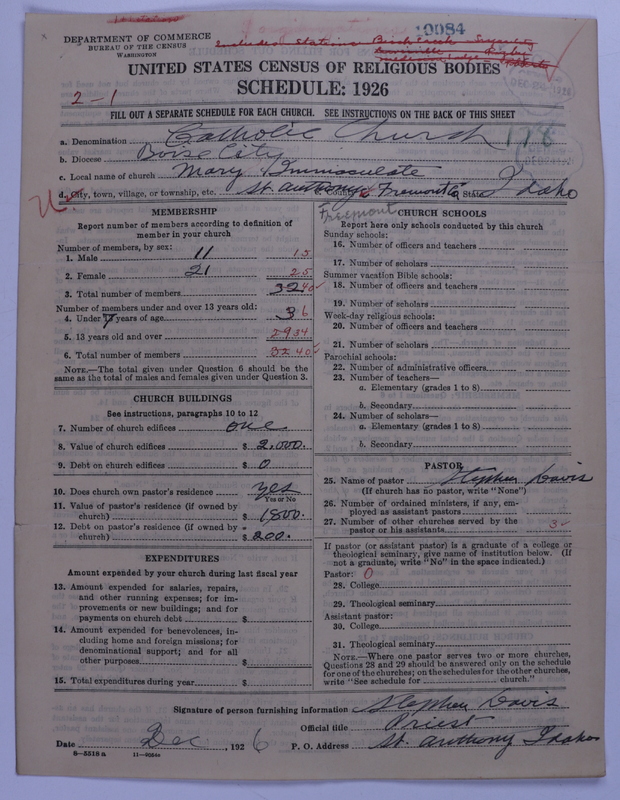 10084
DEPARTMENT OF COMMERCE
BUREAU OF THE CENSUS
WASHINGTON
UNITED STATES CENSUS OF RELIGIOUS BODIES
SCHEDULE: 1926
2-1
FILL OUT A SEPARATE SCHEDULE FOR EACH CHURCH. SEE INSTRUCTIONS ON THE BACK OF THIS SHEET
a. Denomination Catholic Church 178
b. Diocese Boise City
c. Local name of church Mary Immaculate
d. City, town, village, or township, etc. St. Anthony County Fremont Co State Idaho
Freemont
MEMBERSHIP
Report number of members according to definition of member in your church
Number of members, by sex:
1. Male 11 15
2. Female 21 25
3. Total number of members 32 40
Number of members under and over 13 years old:
4. Under 13 years of age 3 6
5. 13 years old and over 29 34
6. Total number of members 32 40
NOTE.—The total given under Question 6 should be the same as the total of males and females given under Question 3.
CHURCH BUILDINGS
See instructions, paragraphs 10 to 12
7. Number of church edifices one
8. Value of church edifices $ 2,000.
9. Debt on church edifices $ 0
10. Does church own pastor's residence yes
Yes or No
11. Value of pastor's residence (if owned by church) $ 1800.
12. Debt on pastor's residence (if owned by church) $ 200.
EXPENDITURES
Amount expended by your church during last fiscal year
13. Amount expended for salaries, repairs, and other running expenses; for improvements or new buildings; and for payments on church debt $
14. Amount expended for benevolences, including home and foreign missions; for denominational support; and for all other purposes $
15. Total expenditures during year $
CHURCH SCHOOLS
Report here only schools conducted by this church
Sunday schools:
16. Number of officers and teachers
17. Number of scholars
Summer vacation Bible schools:
18. Number of officers and teachers
19. Number of scholars
Week-day religious schools:
20. Number of officers and teachers
21. Number of scholars
Parochial schools:
22. Number of administrative officers
23. Number of teachers—
a. Elementary (grades 1 to 8)
b. Secondary
24. Number of scholars—
a. Elementary (grades 1 to 8)
b. Secondary
PASTOR
25. Name of pastor Stephen Davis
(If church has no pastor, write "None")
26. Number of ordained ministers, if any, employed as assistant pastors
27. Number of other churches served by the pastor or his assistants 3
If pastor (or assistant pastor) is a graduate of a college or theological seminary, give name of institution below. (If not a graduate, write "No" in the space indicated.)
Pastor: 0
28. College
29. Theological seminary
Assistant pastor:
30. College
31. Theological seminary
NOTE.—Where one pastor serves two or more churches, Questions 28 and 29 should be answered only on the schedule for one of the churches; on the schedules for the other churches, write "See schedule for church."
Signature of person furnishing information Stephen Davis
Official title Priest
Date Dec , 1926 P. O. Address St. Anthony Idaho
8—5518 a